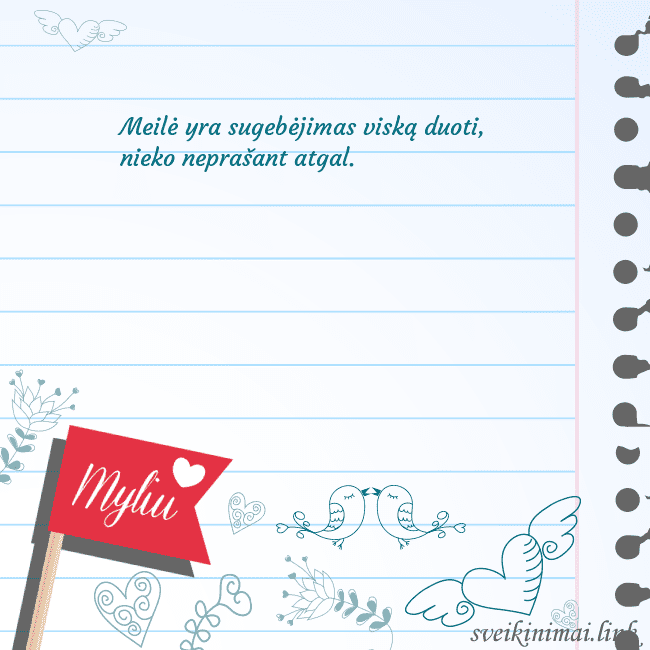 Meilė yra sugebėjimas viską duoti,
nieko neprašant atgal.
Myliu
sveikinimai.link